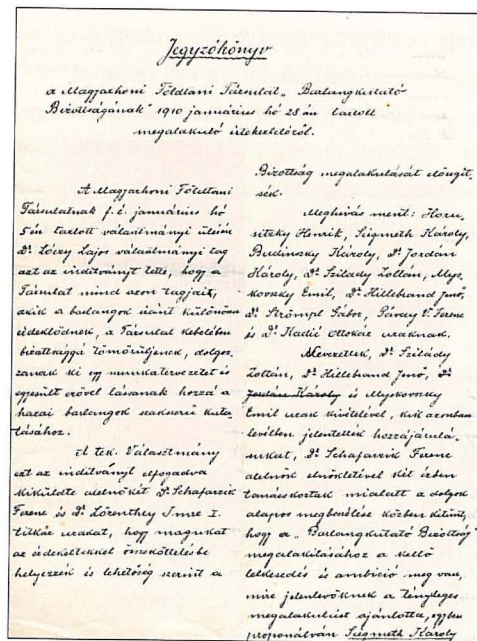 Jegyzőkönyv
a Magyarhoni Földtani Társulat „Barlangkutató
Bizottságának" 1910 januárius hó 28 án tartott
megalakuló értekezletéről.
A Magyarhoni Földtani
Társulatnak f. é. januárius hó
5én tartott választmányi ülésén
Dr Lóczy Lajos választmányi tag
azt az inditványt tette, hogy a
Társulat mind azon tagjait,
akik a barlangok iránt különösen
érdeklődnek, a Társulat kebelében
bizottsággá tömörüljenek, dolgoz-
zanak ki egy munkatervezetet és
egyesült erővel lássanak hozzá a
hazai barlangok szakszerű kuta-
tásához.
A tek. Választmány
ezt az inditványt elfogadva
kiküldte alelnökét Dr Schafarzik
Ferenc és Dr Lörenthey Imre I.
titkár urakat, hogy magukat
az érdekeltekkel összeköttetésbe
helyezzék és lehetőség szerint a
Bizottság megalakulását elősegit-
sék.
Meghivás ment: Horu-
sitzky Henrik, Siegmeth Károly,
Budinszky Károly, Dr Jordán
Károly, Dr Szilády Zoltán, Mys-
kovszky Emil, Dr Hillebrand Jenő,
Dr Strömpl Gábor, Pávay V. Ferenc
és Dr Kadić Ottokár uraknak.
Nevezettek, Dr Szilády
Zoltán, Dr Hillebrand Jenő, Dr
Jordán Károly és Myskovszky
Emil urak kivételével, kik azonban
levélben jelentették hozzájárulá-
sukat, Dr Schafarzik Ferenc
alelnök elnökletével két izben
tanácskoztak mialatt a dolgok
alapos megbeszélése közben kitünt,
hogy a „Barlangkutató Bizottság"
megalakitásához a kellő
lelkesedés és ambició meg van,
mire jelenlevőknek a tényleges
megalakulást ajánlotta, egyben
proponálván Siegmeth Károly